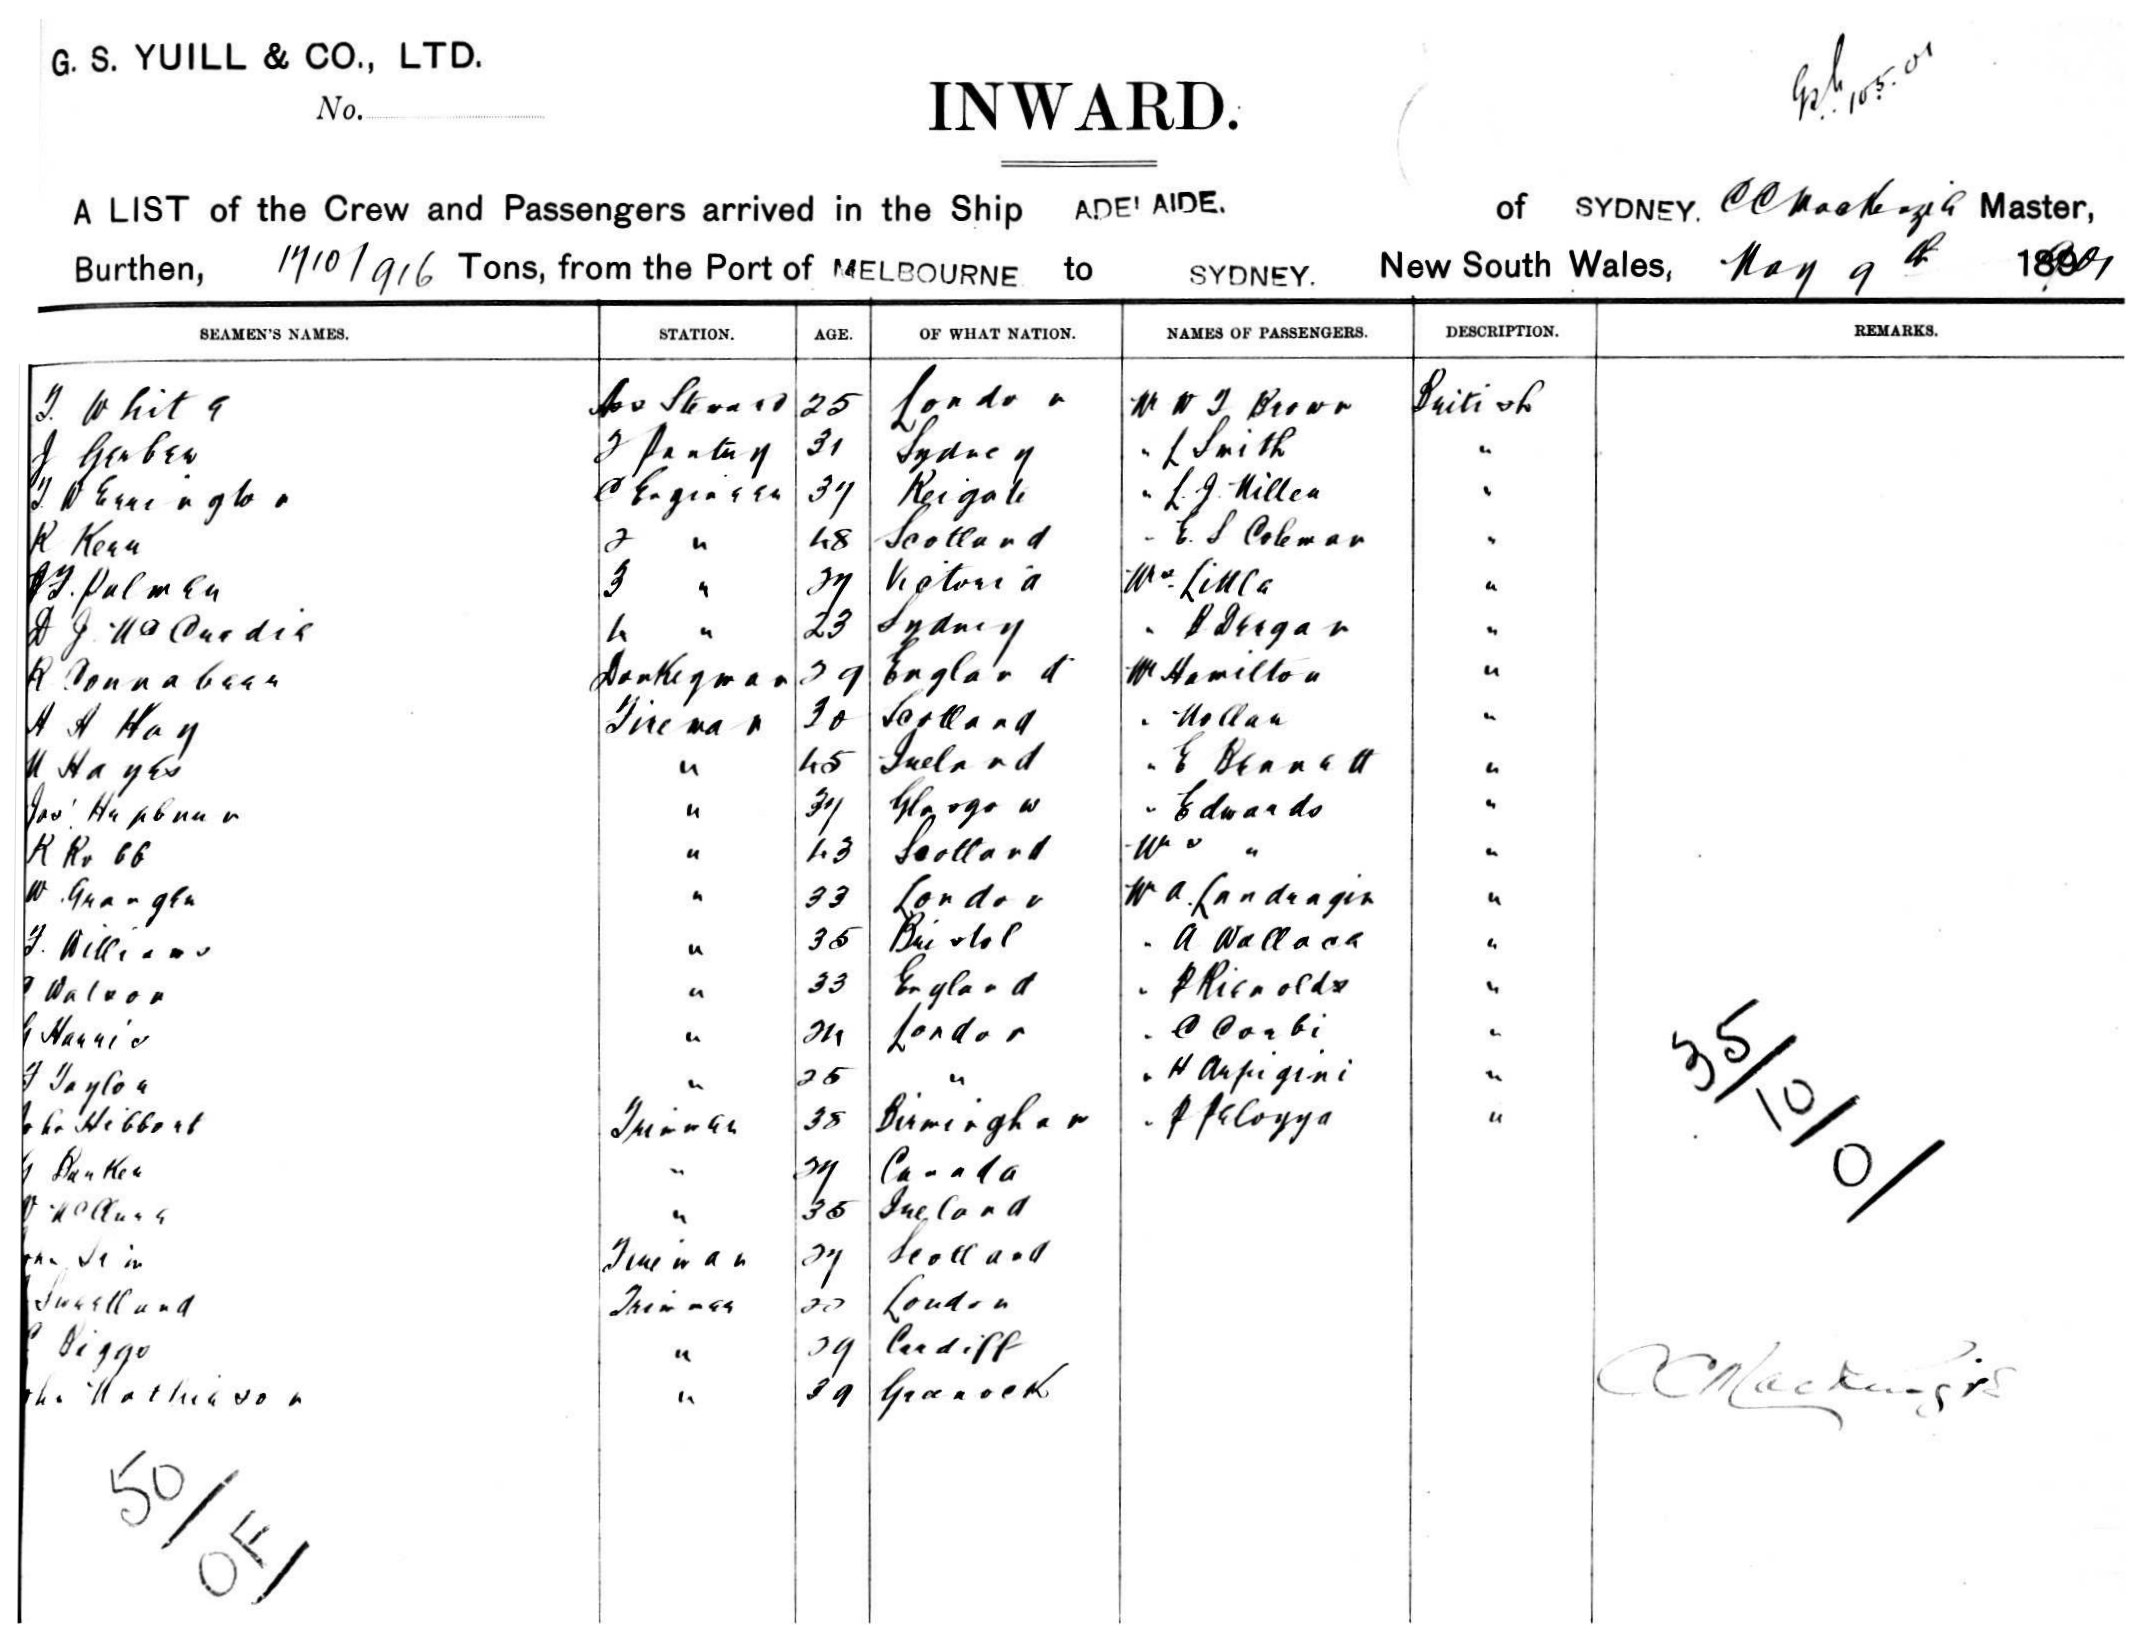 G. S. YUILL & CO., LTD.
No.
INWARD.
10.5.01
A LIST of the Crew and Passengers arrived in the Ship ADELAIDE. of SYDNEY. C C MacKenzie Master,
Burthen, 1710/916 Tons, from the Port of MELBOURNE to SYDNEY. New South Wales, May 9th 1901
SEAMEN'S NAMES. STATION. AGE. OF WHAT NATION. NAMES OF PASSENGERS. DESCRIPTION. REMARKS.
T. White Ass Steward 25 London Mr W J Brown British
J Gerber 2 Pantry 31 Sydney " L Smith "
T. W Errington C Engineer 37 Reigate " L. J. Miller "
R Kerr 2 " 48 Scotland " E. S Coleman "
J. Palmer 3 " 27 Victoria Mrs Little "
D J McCredie 4 " 23 Sydney " Deegan "
R Donnabeer Donkeyman 29 England Mr Hamilton "
A A Hay Fireman 30 Scotland " "
M Hayes " 45 Ireland " E Bennett "
Jas' Hepburn " 37 Glasgow " Edwards "
R Robb " 43 Scotland Mrs " "
W Granger " 33 London Mr A. Landragin "
T. Williams " 35 Bristol " A Wallace "
Watson " 33 England " P Rienolds "
G Harris " 24 London " C Corbi "
T Taylor " 25 " " H Arpigini "
John Hibbert Trimmer 38 Birmingham " P Pelozza "
Barker " 27 Canada
McClure " 35 Ireland
Sim Fireman 27 Scotland
Sweetland Trimmer 22 London
Biggs " 29 Cardiff
John Mathieson " 39 Greenock
35/10/0/
C C MacKenzie
50/
OF/